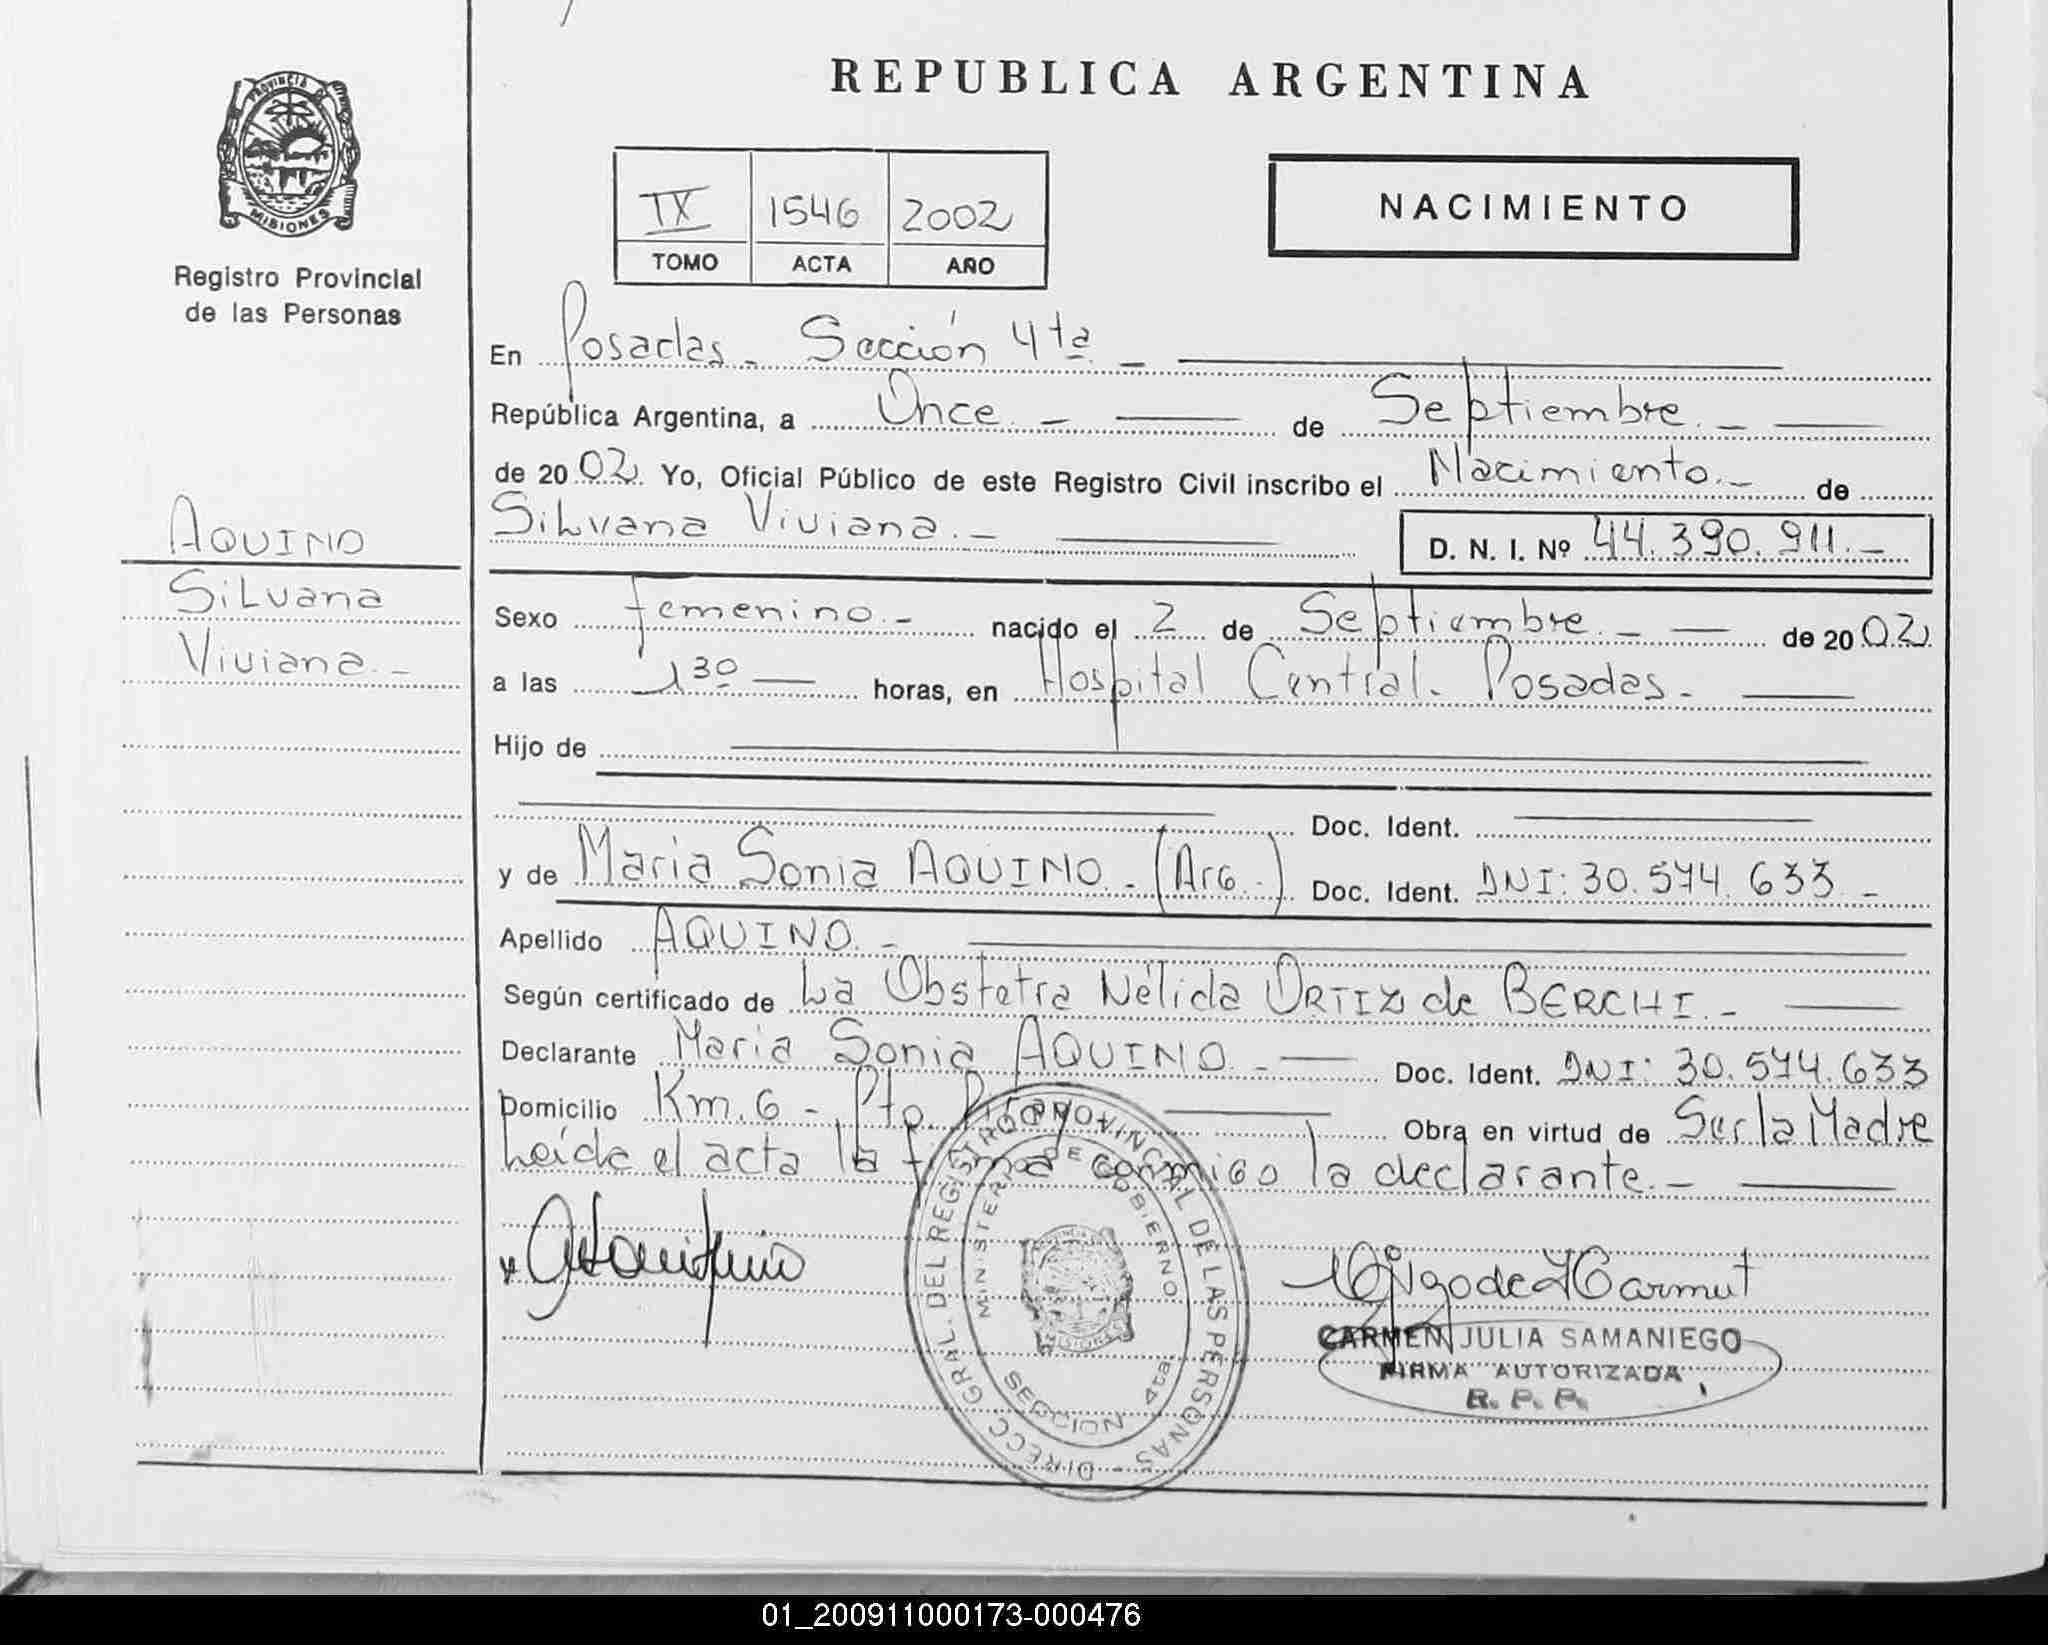 PROVINCIA DE
MISIONES
Registro Provincial
de las Personas
REPUBLICA ARGENTINA
IX 1546 2002
TOMO ACTA AÑO
NACIMIENTO
En Posadas - Sección 4ta. -
República Argentina, a Once - de Septiembre. -
de 2002. Yo, Oficial Público de este Registro Civil inscribo el Nacimiento. - de
Silvana Viviana. - D. N. I. Nº 44.390.911. -
AQUINO
Silvana
Viviana. -
Sexo femenino - nacido el 2 de Septiembre. - de 2002.
a las 1 30 horas, en Hospital Central. Posadas -
Hijo de
Doc. Ident.
y de Maria Sonia AQUINO - (Arg.-) Doc. Ident. DNI: 30.574.633 -
Apellido AQUINO. -
Según certificado de La Obstetra Nélida ORTIZ de BERCHI. -
Declarante Maria Sonia AQUINO. - Doc. Ident. DNI: 30.574.633
Domicilio Km. 6 - Pto. Obra en virtud de Ser la Madre
Leída el acta la firma conmigo la declarante. -
DIRECC. GRAL. DEL REGISTRO PROVINCIAL DE LAS PERSONAS -
MINISTERIO DE GOBIERNO
SECCION 4ta.
CARMEN JULIA SAMANIEGO
FIRMA AUTORIZADA
R. P. P.
01_200911000173-000476